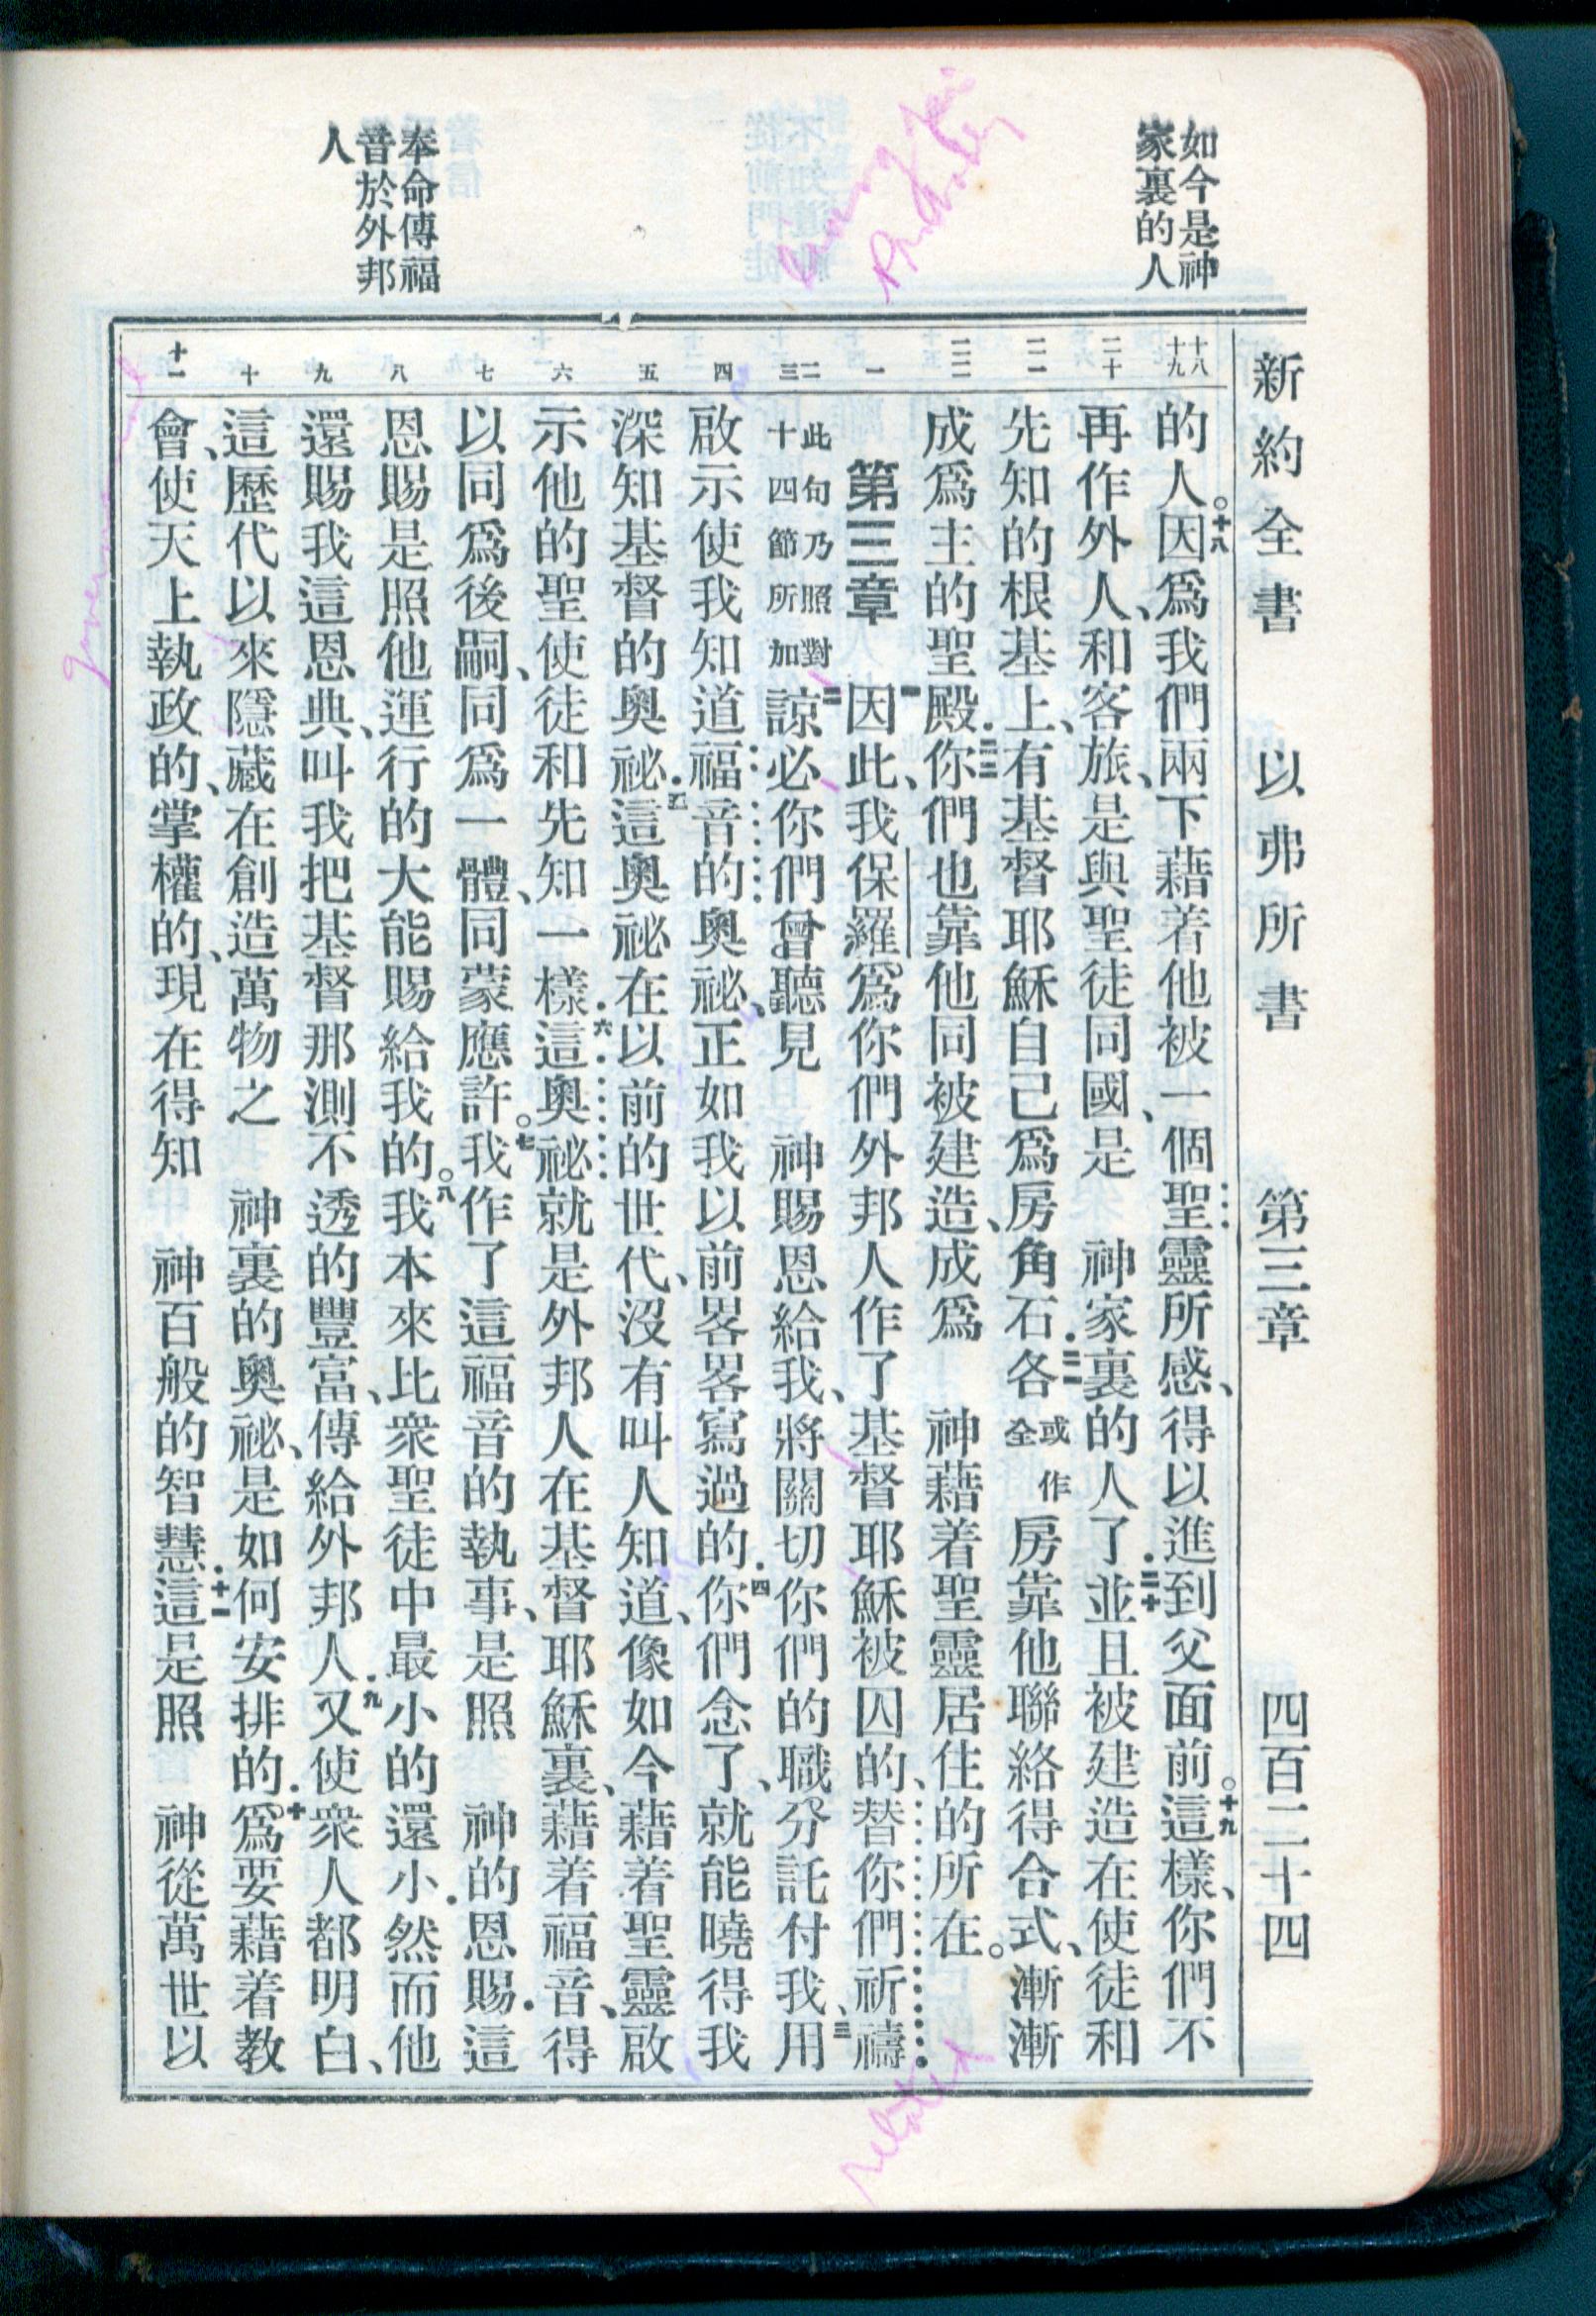 如今是神
家裏的人
奉命傳福
音於外邦
人
新約全書 以弗所書 第三章 四百二十四
十八
十九
二十
二一
二二
一
二
三
四
五
六
七
八
九
十
十一
的人。十八因爲我們兩下藉着他被一個聖靈所感、得以進到父面前。十九這樣、你們不
再作外人、和客旅、是與聖徒同國、是 神家裏的人了．二十並且被建造在使徒和
先知的根基上、有基督耶穌自己爲房角石．二一各或作全房靠他聯絡得合式、漸漸
成爲主的聖殿．二二你們也靠他同被建造、成爲 神藉着聖靈居住的所在。
第三章 一因此、我保羅、爲你們外邦人作了基督耶穌被囚的、替你們祈禱．
此句乃照對十四節所加二諒必你們曾聽見 神賜恩給我、將關切你們的職分託付我、三用
啟示使我知道福音的奧祕、正如我以前畧畧寫過的．四你們念了、就能曉得我
深知基督的奧祕．五這奧祕在以前的世代、沒有叫人知道、像如今藉着聖靈啟
示他的聖使徒和先知一樣．六這奧祕就是外邦人在基督耶穌裏、藉着福音、得
以同爲後嗣、同爲一體、同蒙應許。七我作了這福音的執事、是照 神的恩賜．這
恩賜是照他運行的大能賜給我的。八我本來比衆聖徒中最小的還小．然而他
還賜我這恩典、叫我把基督那測不透的豐富、傳給外邦人．九又使衆人都明白、
這歷代以來隱藏在創造萬物之 神裏的奧祕、是如何安排的．十爲要藉着教
會、使天上執政的、掌權的、現在得知 神百般的智慧．十一這是照 神從萬世以